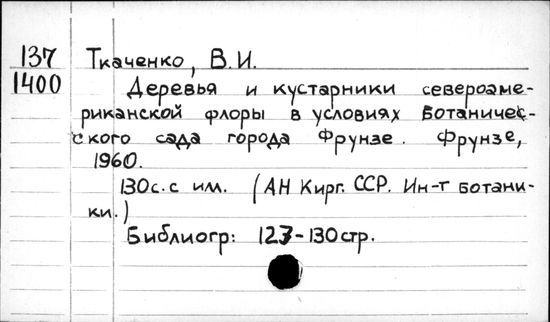 137 Ткаченко, В.И.
1400 Деревья и кустарники североаме-
риканской флоры в условиях Ботаничес-
ского сада города Фрунзе. Фрунзе,
1960.
130с. с ил. (АН Кирг. ССР. Ин-т ботани-
ки.)
Библиогр: 123-130стр.